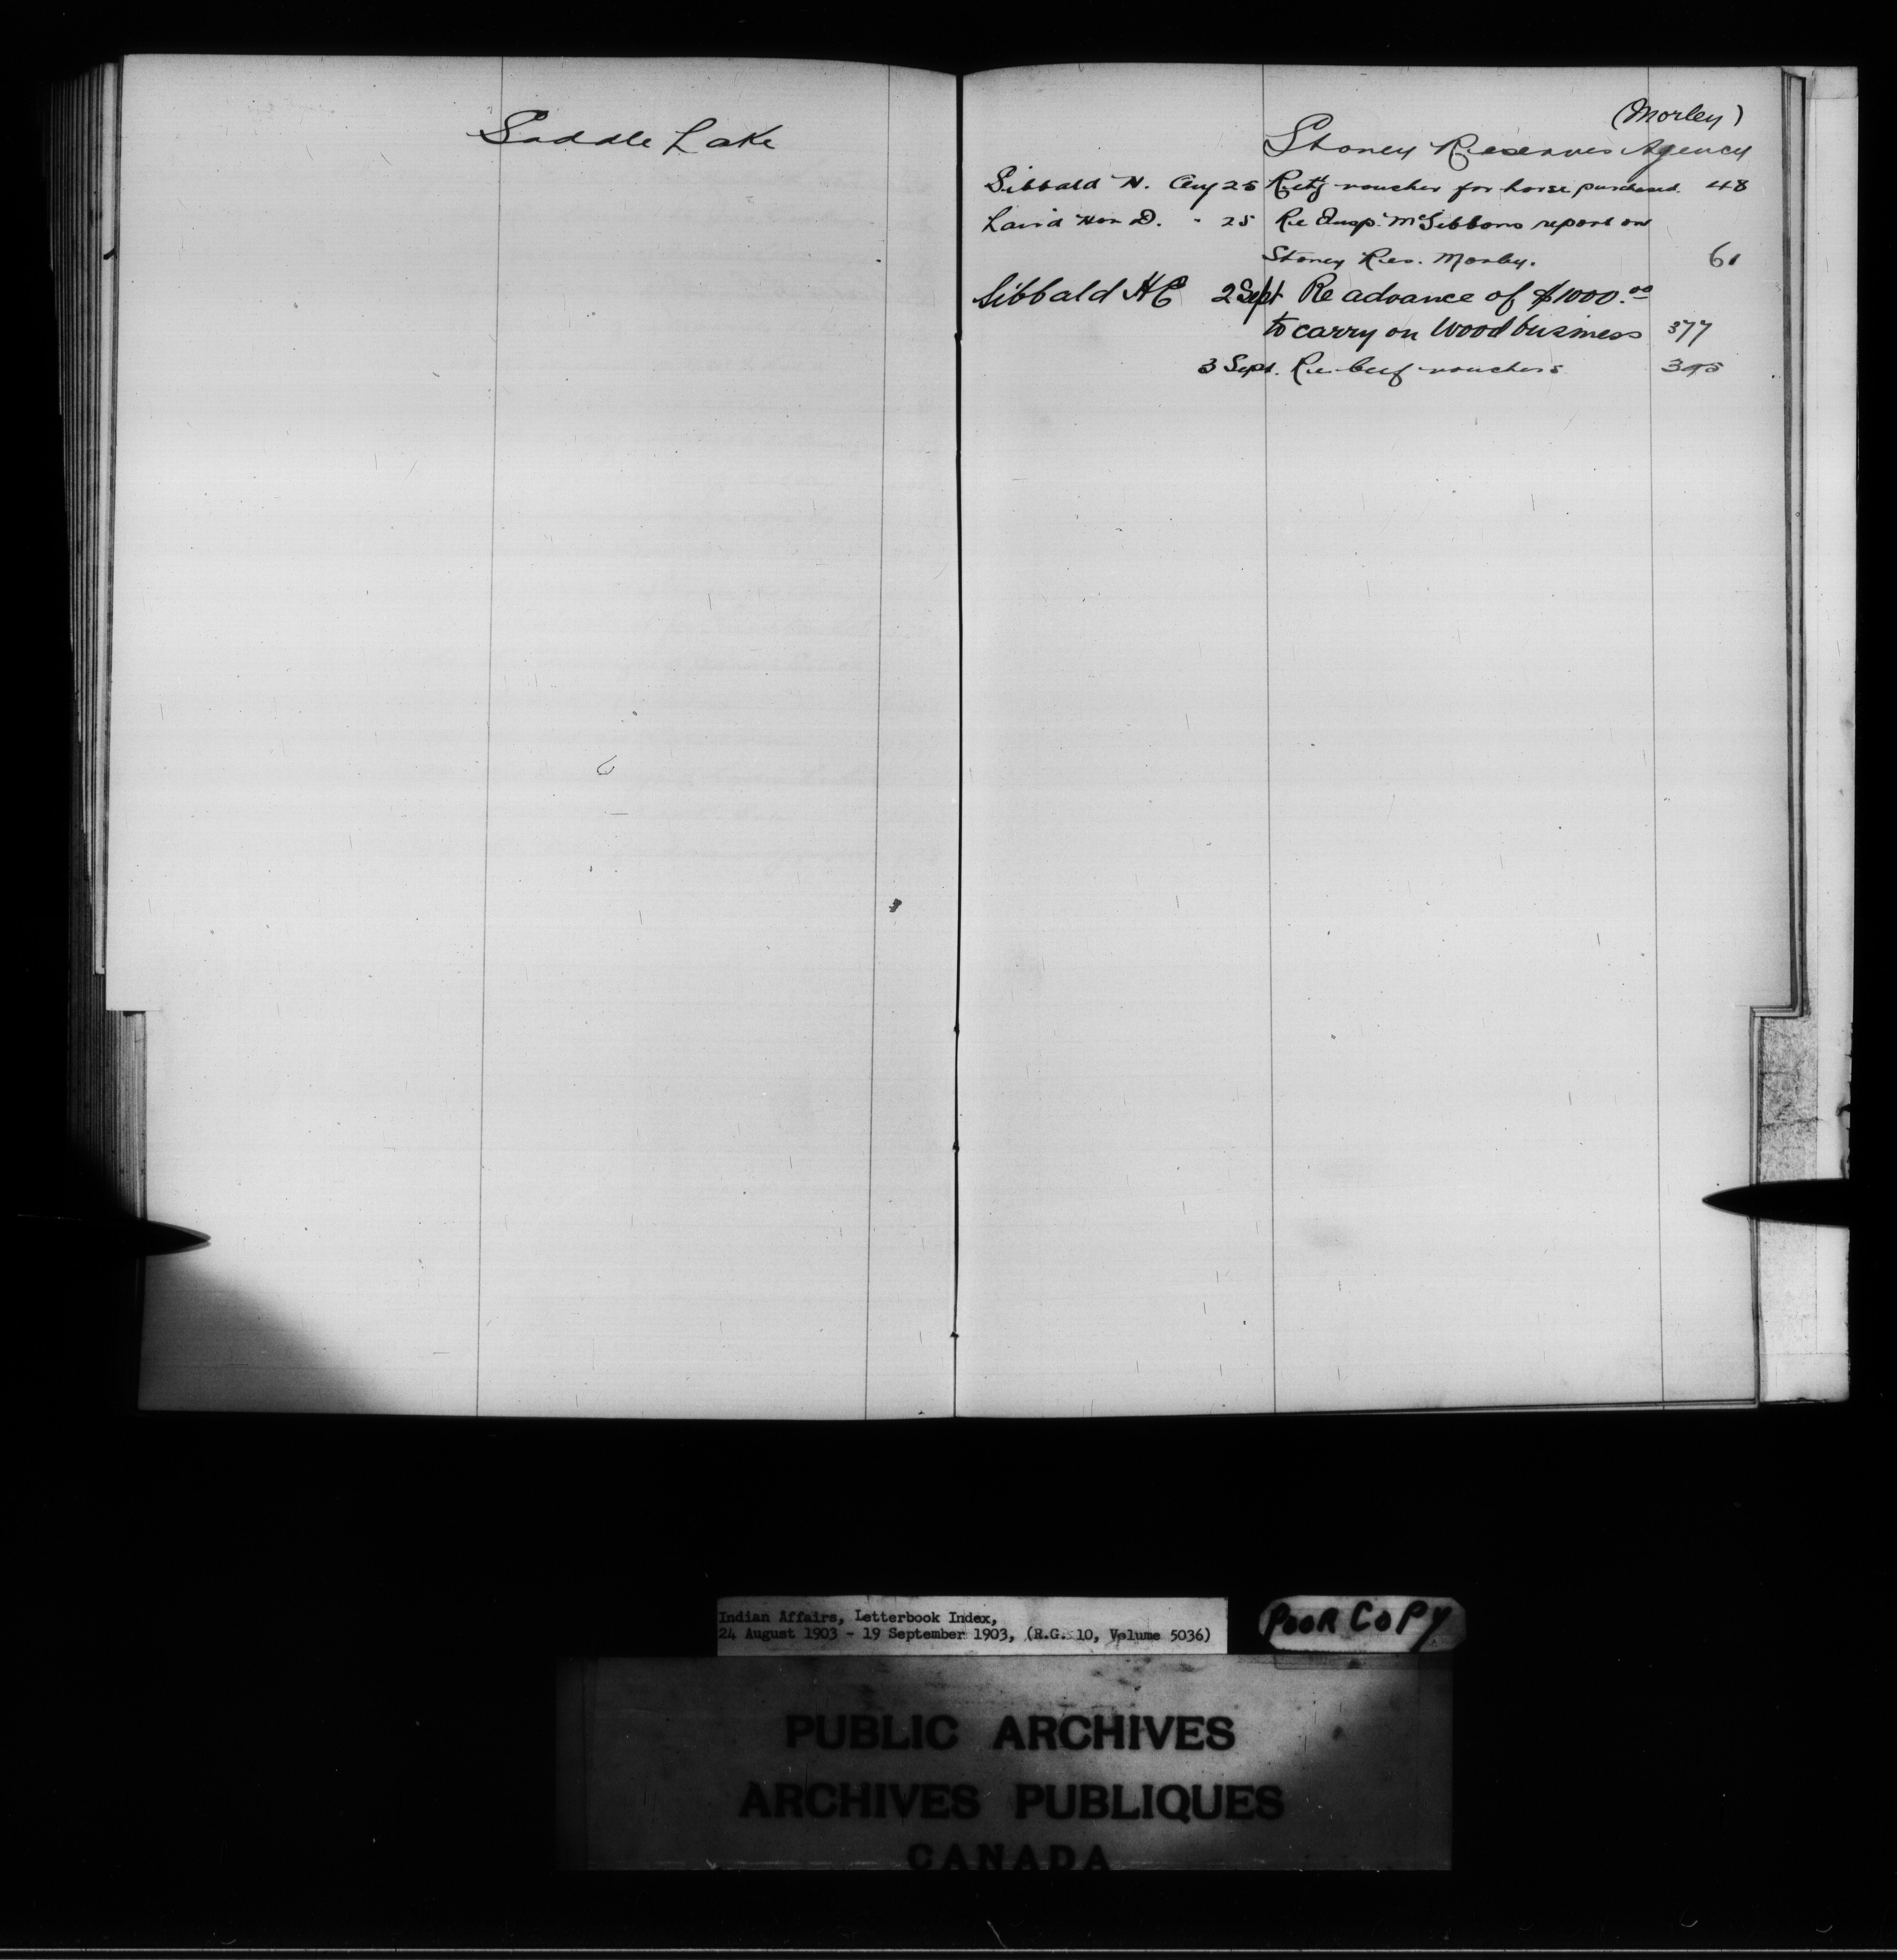 Saddle Lake
(Morley)
Stoney Reserves Agency
Sibbald H. Aug 25 Retg voucher for horse purchased. 48
Laird Hon D. " 25 Re Insp. McGibbons report on
Stoney Res. Morley. 61
Sibbald HE 2 Sept Re advance of $1000.00
to carry on Wood business 377
3 Sept. Re beef vouchers 395
Indian Affairs, Letterbook Index,
24 August 1903 - 19 September 1903, (R.G. 10, Volume 5036)
POOR COPY
PUBLIC ARCHIVES
ARCHIVES PUBLIQUES
CANADA